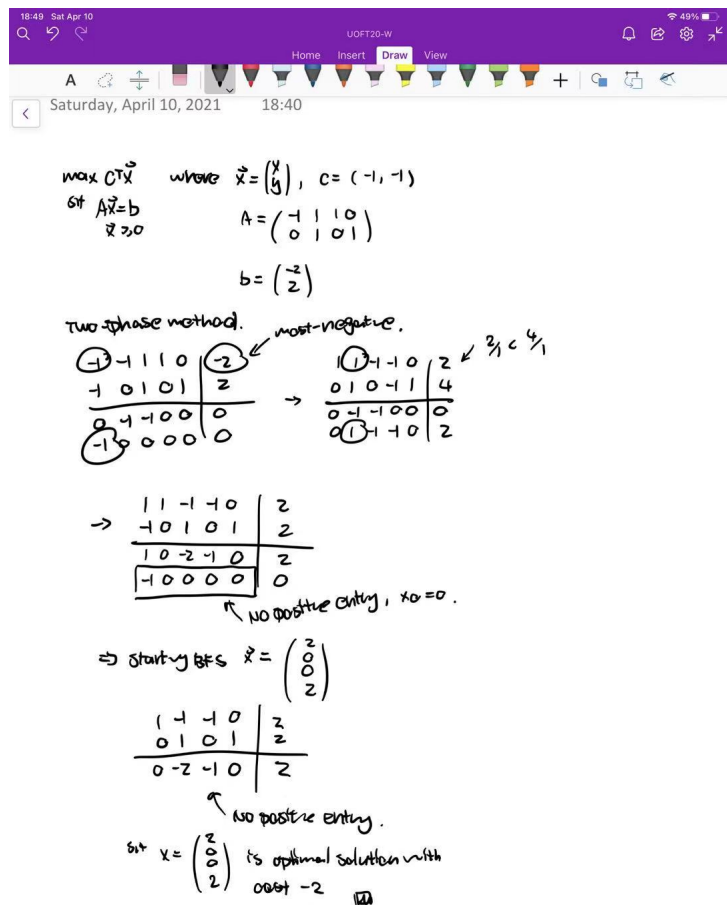 18:49 Sat Apr 10
49%
UOFT20-W
Home Insert Draw View
A
Saturday, April 10, 2021 18:40
max CᵀX⃗ where x⃗ = (x y), c = (-1, -1)
s.t. Ax⃗ = b
x⃗ ≥ 0
A = (-1 1 1 0
0 1 0 1)
b = (-2
2)
Two-phase method.
most-negative.
-1 -1 1 1 0 | -2
-1 0 1 0 1 | 2
0 -1 -1 0 0 | 0
-1 0 0 0 0 | 0
→
1 1 -1 -1 0 | 2
0 1 0 -1 1 | 4
0 -1 -1 0 0 | 0
0 1 -1 -1 0 | 2
2/1 < 4/1
→
1 1 -1 -1 0 | 2
-1 0 1 0 1 | 2
1 0 -2 -1 0 | 2
-1 0 0 0 0 | 0
No positive entry, x0 = 0.
⇒ starting BFS x⃗ = (2
0
0
2)
1 -1 -1 0 | 2
0 1 0 1 | 2
0 -2 -1 0 | 2
No positive entry.
s.t. x = (2
0
0
2) is optimal solution with
cost -2